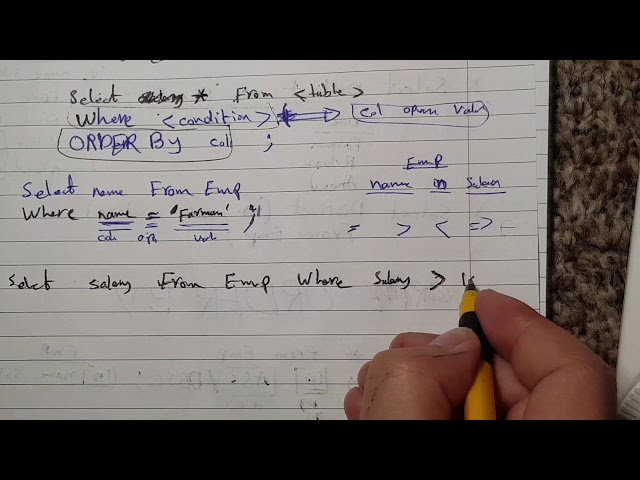 Select * From <table>
Where <condition> col opern value
ORDER By col ;
Emp
name ID Salary
Select name From Emp
Where name = 'Farman' ;
col opr val
= > < =>
Select salary From Emp Where Salary >